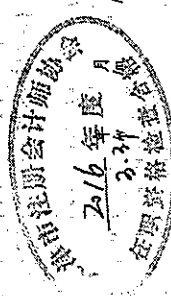 注册会计师协会
2016 年度
月
任职资格检查合格